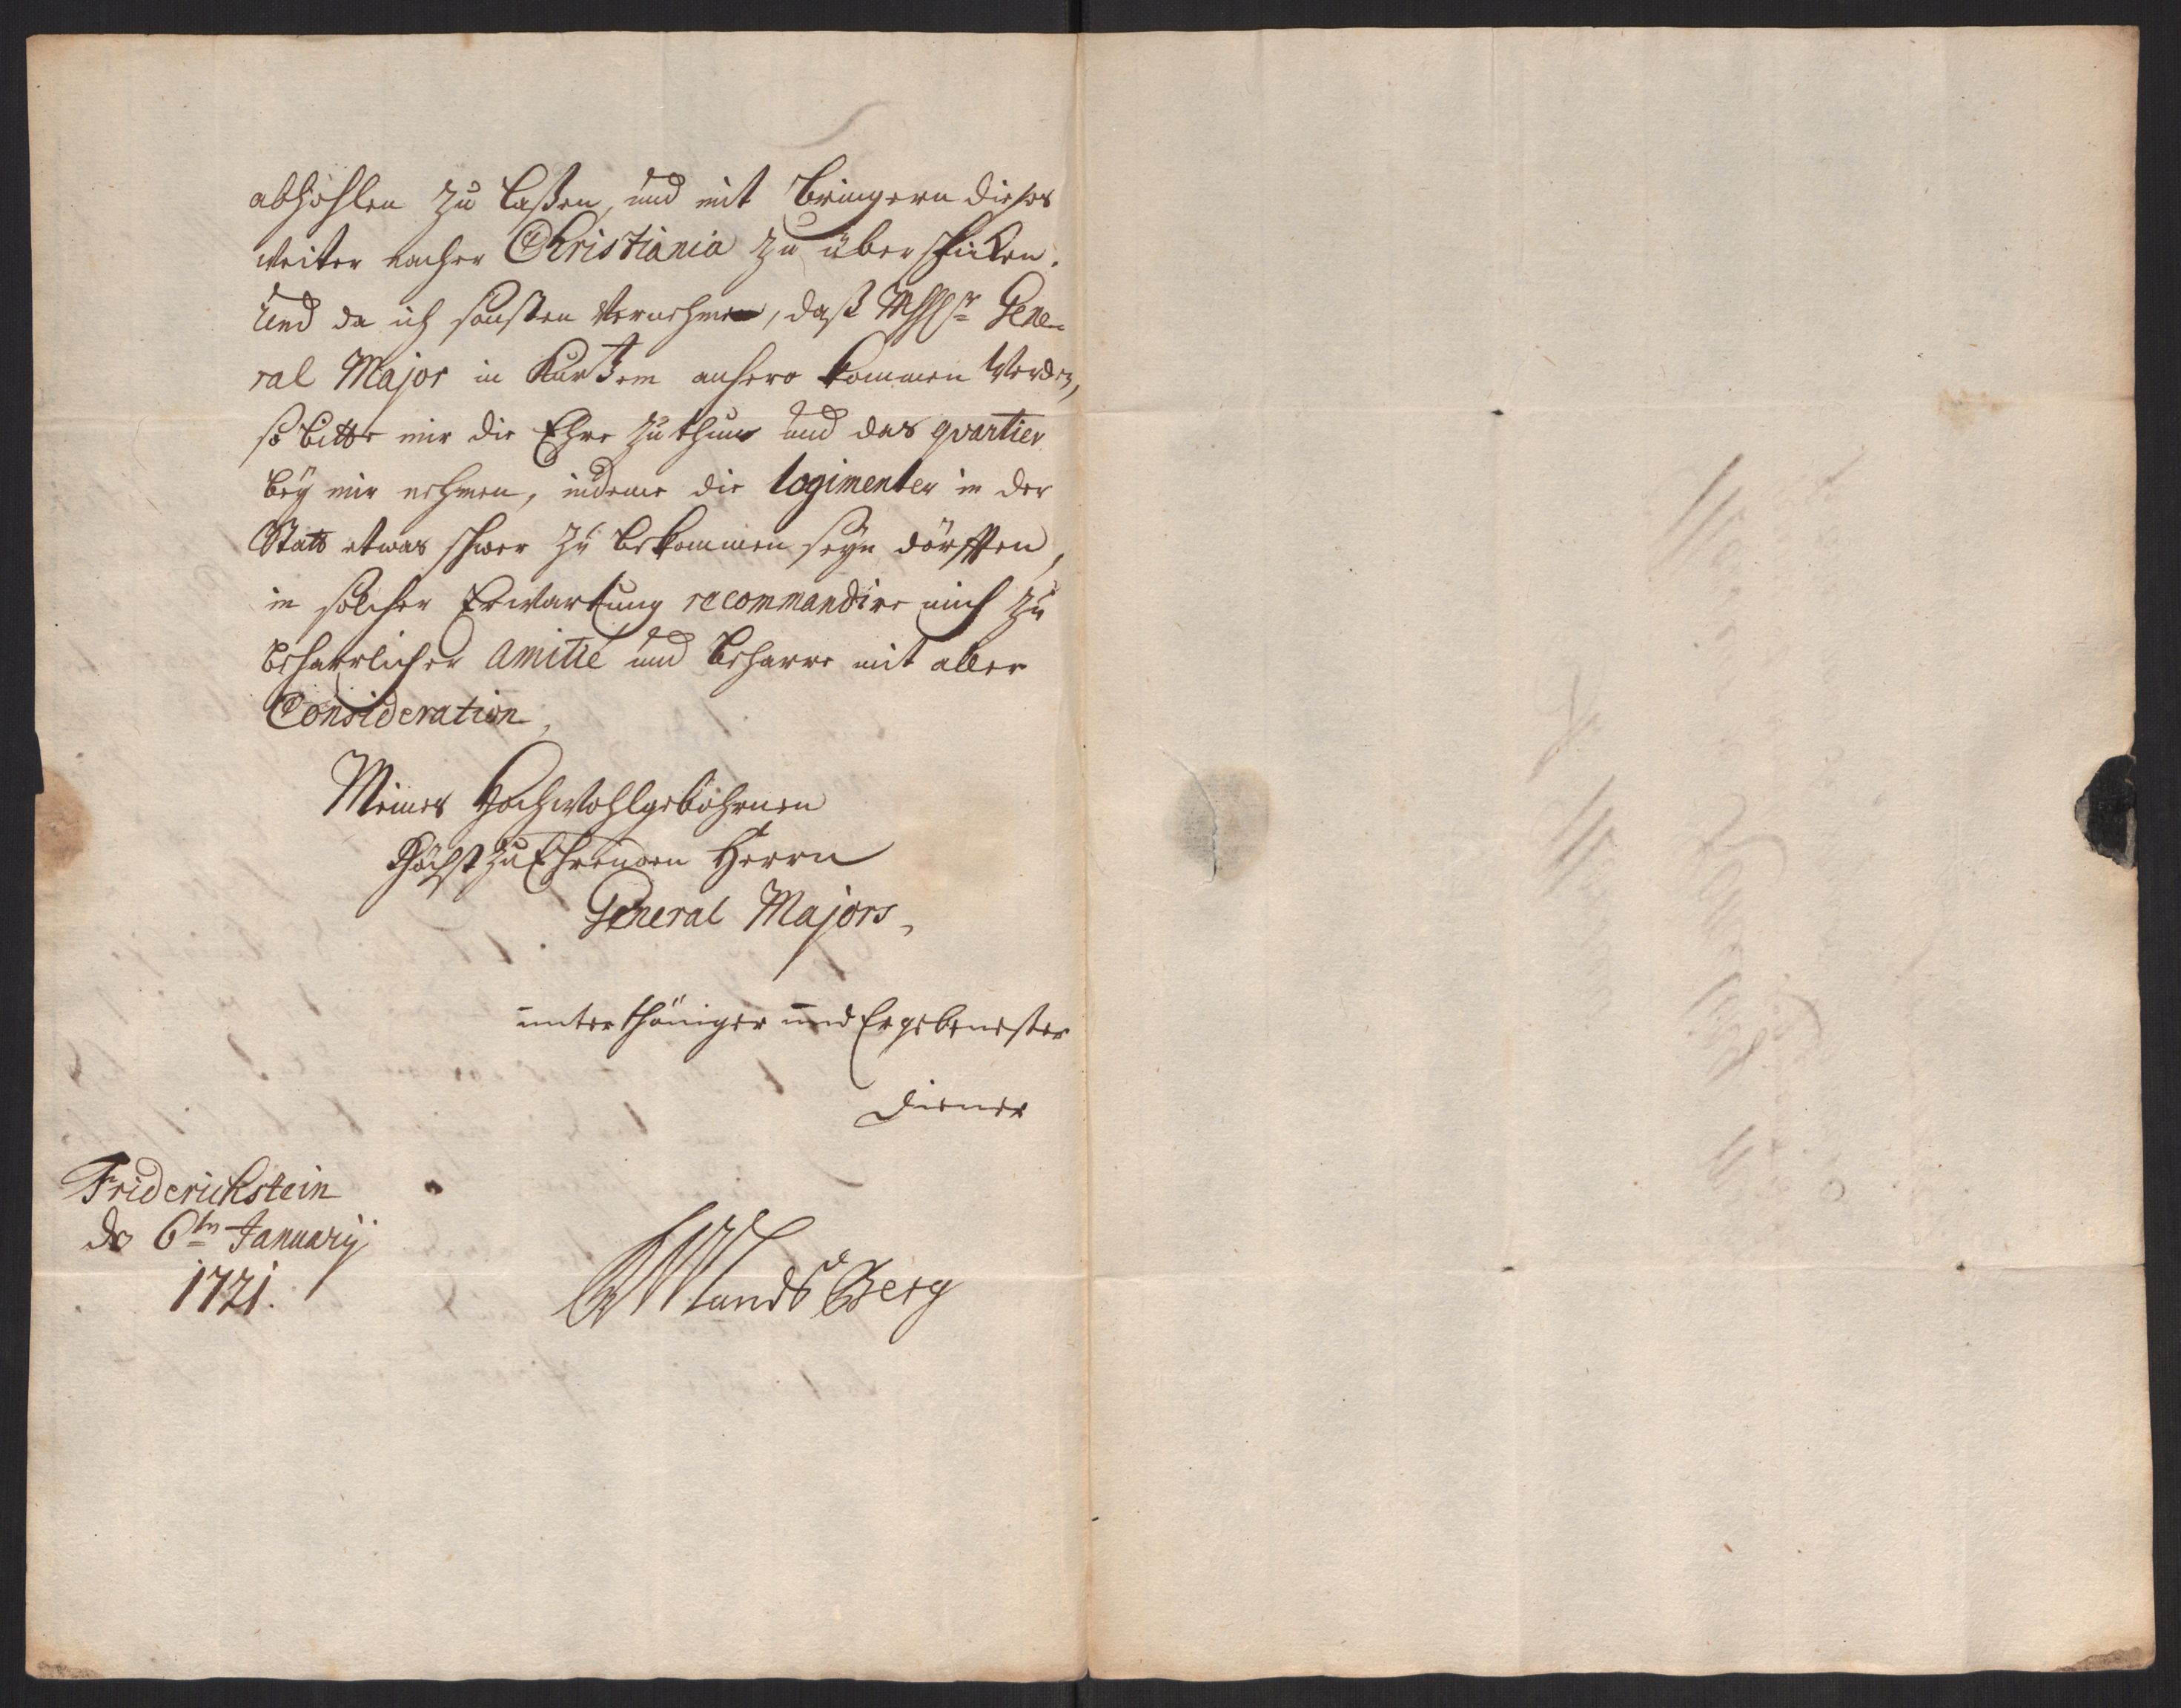 abhohlen zu laßen, und mit bringern dießes
weiter nacher Christiania zu überschicken.
Und da ich sonsten vernehme, daß Gene-
ral Major in Kurtzem anhero kommen werden,
so bitte mir die Ehre zu thun und das qvartier
beÿ mir nehmen, indeme die logimenter in der
Statt etwas schwer zu bekommen seÿn dörfften,
in solcher Erwartung recommandire mich zu
beharrlicher amitié und beharre mit aller
Consideration,
Meines Hochwohlgebohrnen
Höchst zu Ehrenden Herrn
General Majors,
unterthäniger und Ergebenester
Diener
Friderichstein
d. 6tn Januarÿ
1721.
LandsBerg